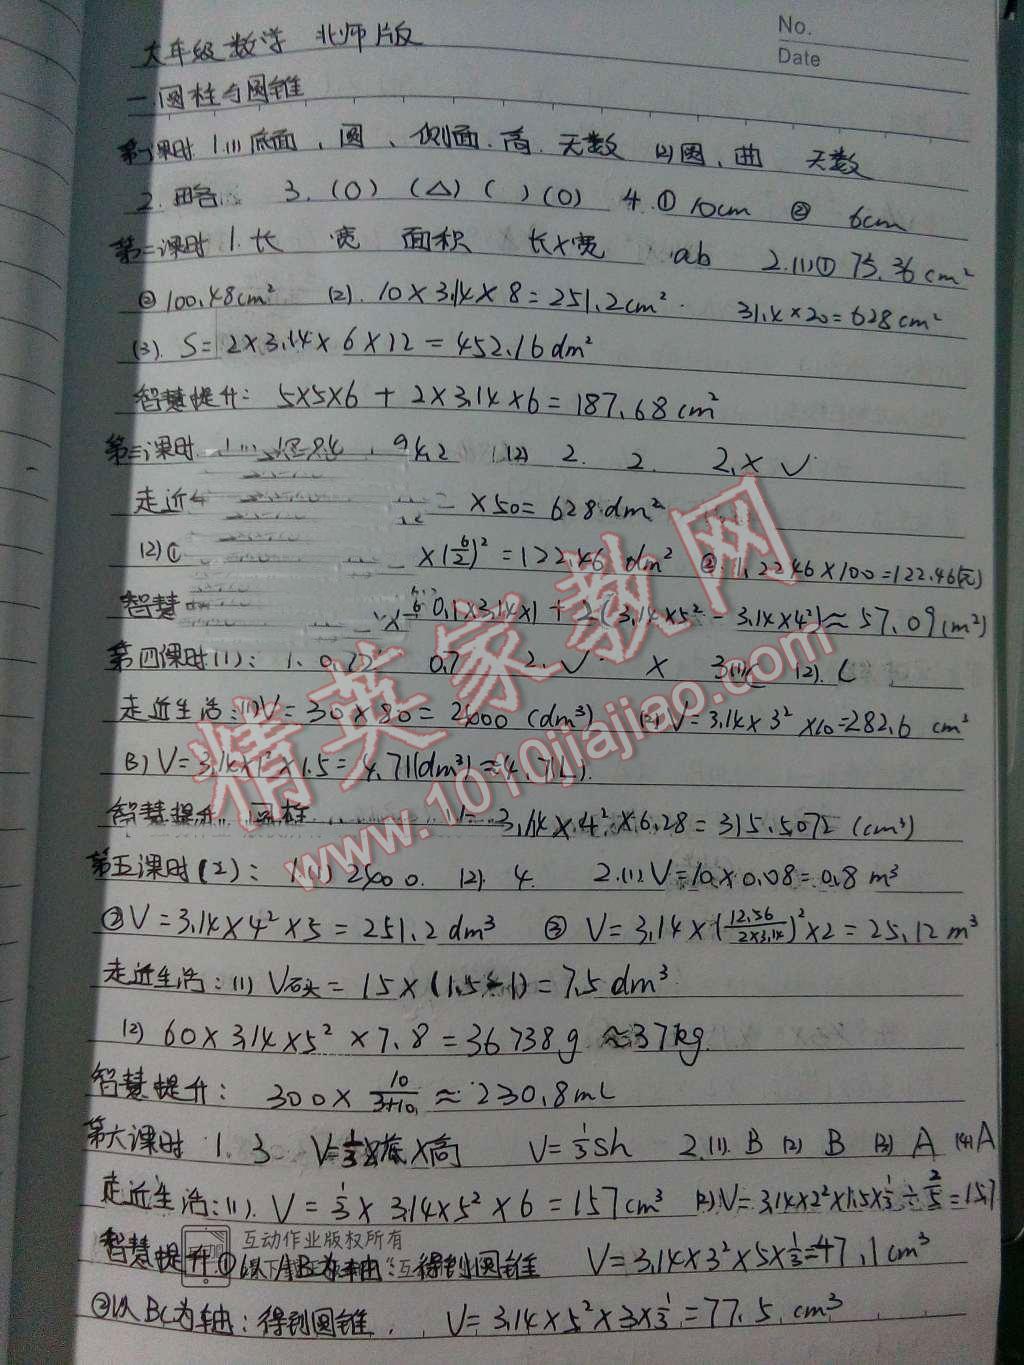 No.
Date
六年级数学 北师版
一.圆柱与圆锥
第一课时 1.(1)底面、圆、侧面.高.无数 (2)圆、曲 无数
2.略. 3.(O) (△) ( ) (O) 4.① 10cm ② 6cm
第二课时 1.长 宽 面积 长×宽 ab 2.(1)① 75.36cm²
② 100.48cm² (2). 10×3.14×8=251.2cm². 31.4×20=628cm²
(3). S=2×3.14×6×12=452.16dm²
智慧提升: 5×5×6+2×3.14×6=187.68cm²
第三课时 9.42 (2) 2. 2. 2.× √
走近 ×50=628dm²
(2)① ×(6/2)²=122.46dm² ② 1.2246×100=122.46(元)
智慧 0.1×3.14×1+2(3.14×5²-3.14×4²)≈57.09(m²)
第四课时(1): 1. 0.72 0.7 2.√ × 3(1) (2). L
走近生活:(1)V=30×80=2400(dm³) (2) V=3.14×3²×10=282.6 cm³
(3) V=3.14×1²×1.5=4.71(dm³)≈4.7(L).
智慧提升 圆柱 V=3.14×4²×6.28=315.5072(cm³)
第五课时(2): 1(1) 2400. (2). 4. 2.(1)V=10×0.08=0.8m³
② V=3.14×4²×5=251.2dm³ ③ V=3.14×(12.56/2×3.14)²×2=25.12m³
走近生活:(1) V石头=15×(1.5-1)=7.5dm³
(2) 60×3.14×5²×7.8=36738g≈37kg.
智慧提升: 300×10/3+10≈230.8mL
第六课时 1. 3 V=1/3×底×高 V=1/3Sh 2.(1).B (2) B (3) A (4)A
走近生活:(1). V=1/3×3.14×5²×6=157cm³ (2).V=3.14×2²×1.5×1/3÷2/5=15.7
互动作业版权所有
智慧提升①以AB为轴:得到圆锥 V=3.14×3²×5×1/3=47.1cm³
②以BC为轴:得到圆锥. V=3.14×5²×3×1/3=77.5.cm³
精英家教网
www.1010jiajiao.com